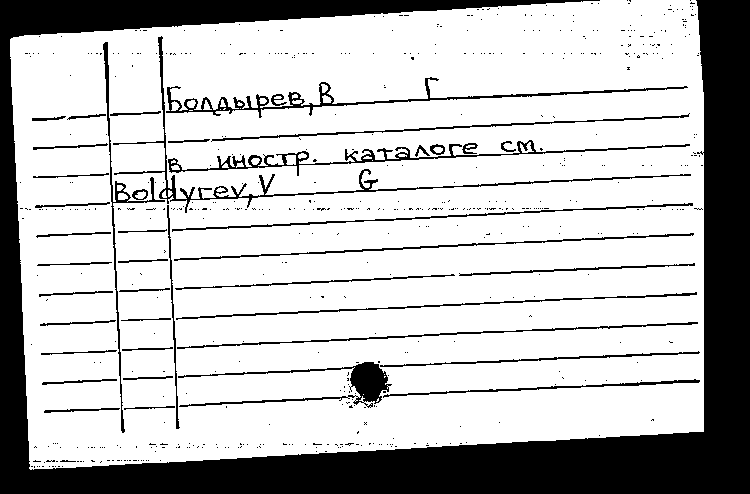 Болдырев, В Г
в иностр. каталоге см.
Boldyrev, V G